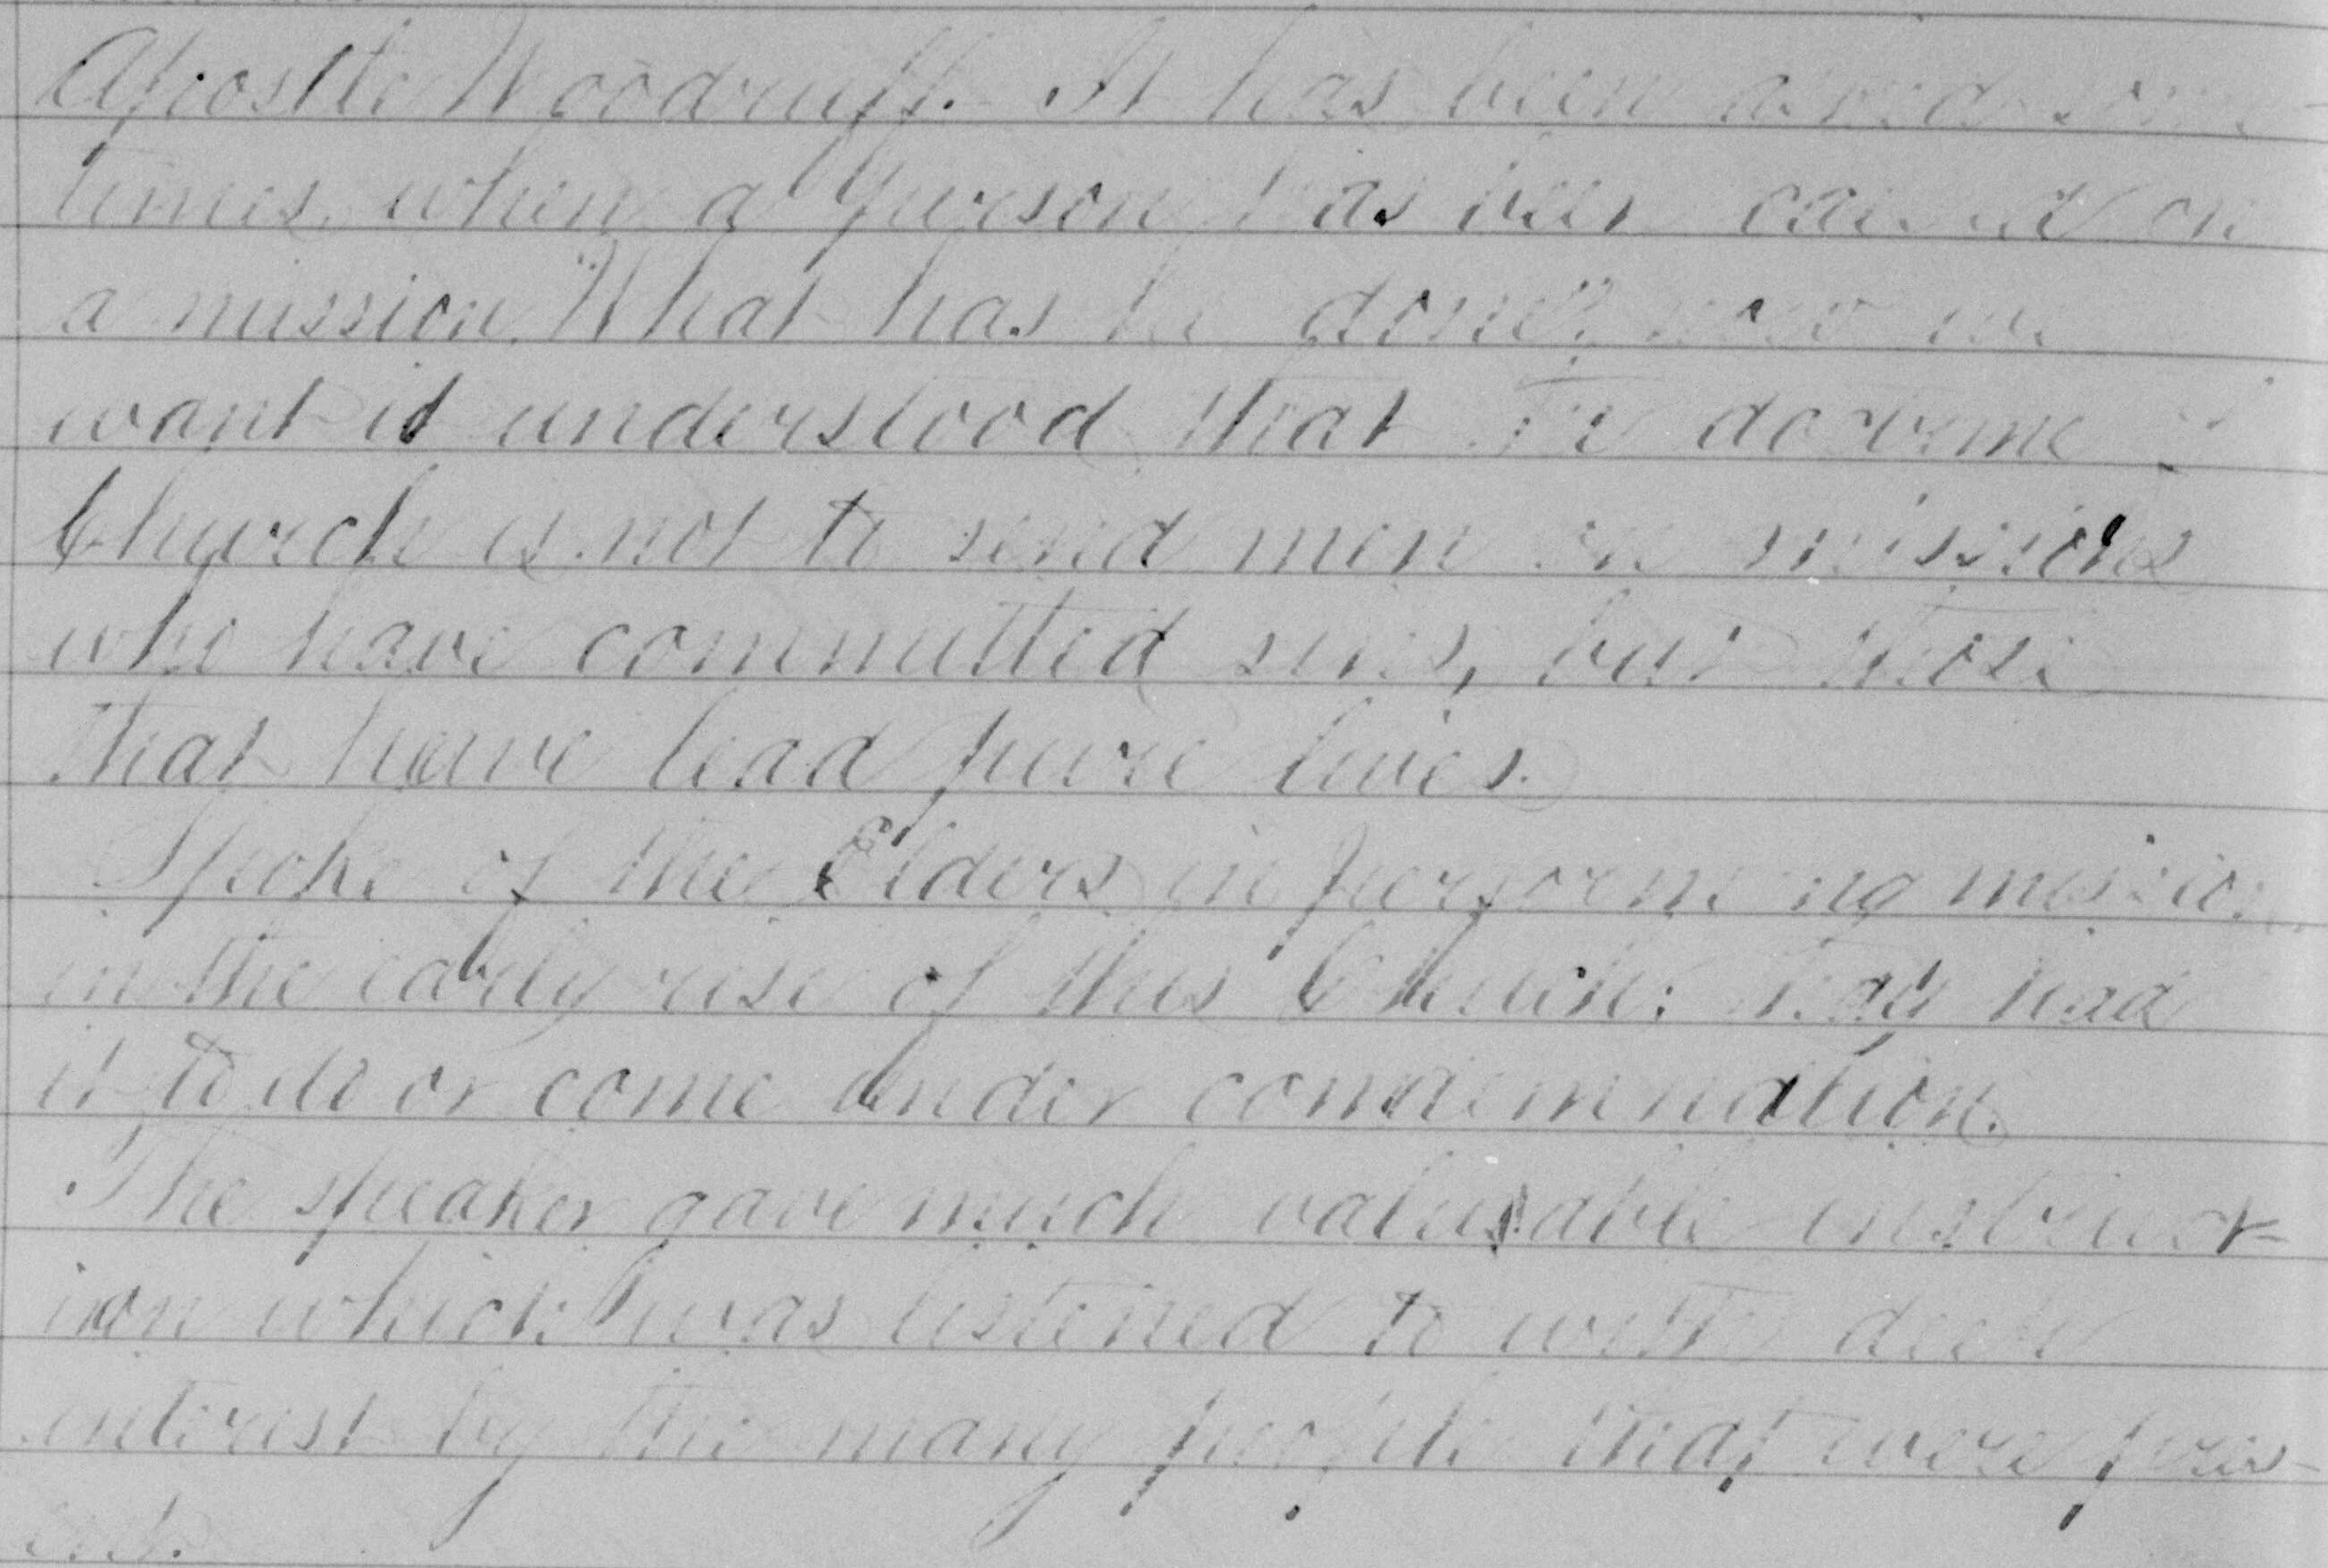 Apostle Woodruff. It has been asked some-
times, when a person has been called on
a mission, "What has he done"? now we
want it understood that the doctrine of
Church is not to send men on missions
who have committed sins, but those
that have lead pure lives.
Spoke of the Elders in performing mission
in the early rise of this Church: They had
it to do or come under condemnation.
The speaker gave much valuable instruct-
ion which was listened to with deep
interest by the many people that were pres-
ent.